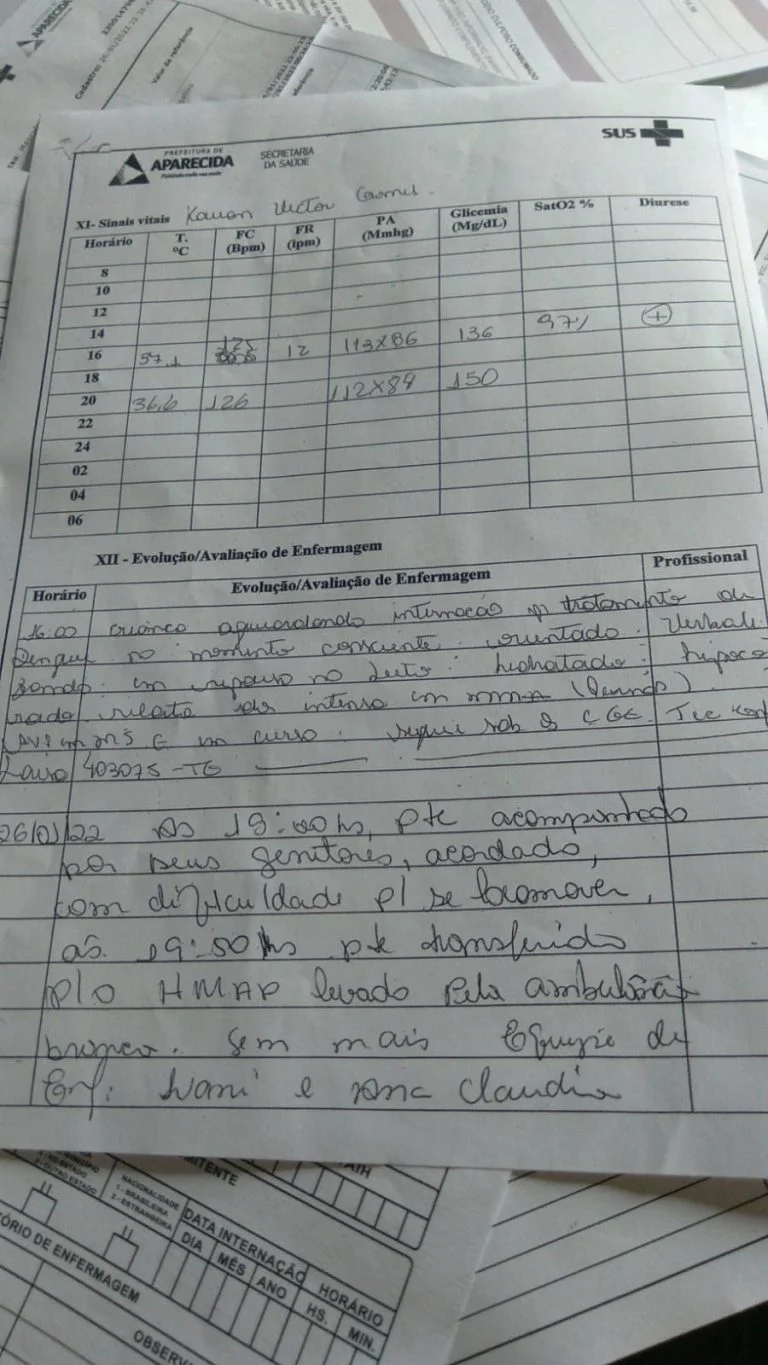 PREFEITURA DE
APARECIDA
SECRETARIA
DA SAÚDE
SUS
XI- Sinais vitais Kauan Victor
Horário T. °C FC (Bpm) FR (ipm) PA (Mmhg) Glicemia (Mg/dL) SatO2 % Diurese
8
10
12
14
16 37,1 125 12 113x86 136 97% +
18
20 36,6 126 112x84 150
22
24
02
04
06
XII - Evolução/Avaliação de Enfermagem
Horário Evolução/Avaliação de Enfermagem Profissional
16:00 criança aguardando internação p/ tratamento de
Dengue no momento consciente. orientado. Verbali
zando. em repouso no leito. hidratado. hipoco
rado relata dor intensa em
em curso. segui sob os C GE. Tec
403075-TE
26/01/22 As 19:00hs, pte acompanhado
por seus genitores, acordado,
com dificuldade p/ se locomover,
as 19:50hs pte transferido
p/o HMAP levado pela ambulância
branca. Sem mais Equipe de
Enf: Ivani e Ana Claudia
NACIONALIDADE
1 - BRASILEIRA
2 - ESTRANGEIRA
DATA INTERNAÇÃO
HORÁRIO
DIA MÊS ANO HS. MIN.
ÓRIO DE ENFERMAGEM
OBSERV